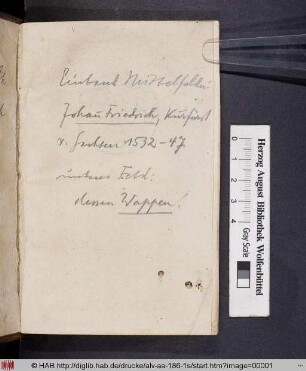 Einband Mittelfeld:
Johann Friedrich, Kurfürst
v. Sachsen 1532-47
unteres Feld:
dessen Wappen!
Herzog August Bibliothek Wolfenbüttel
Gray Scale
© HAB http://diglib.hab.de/drucke/alv-aa-186-1s/start.htm?image=00001